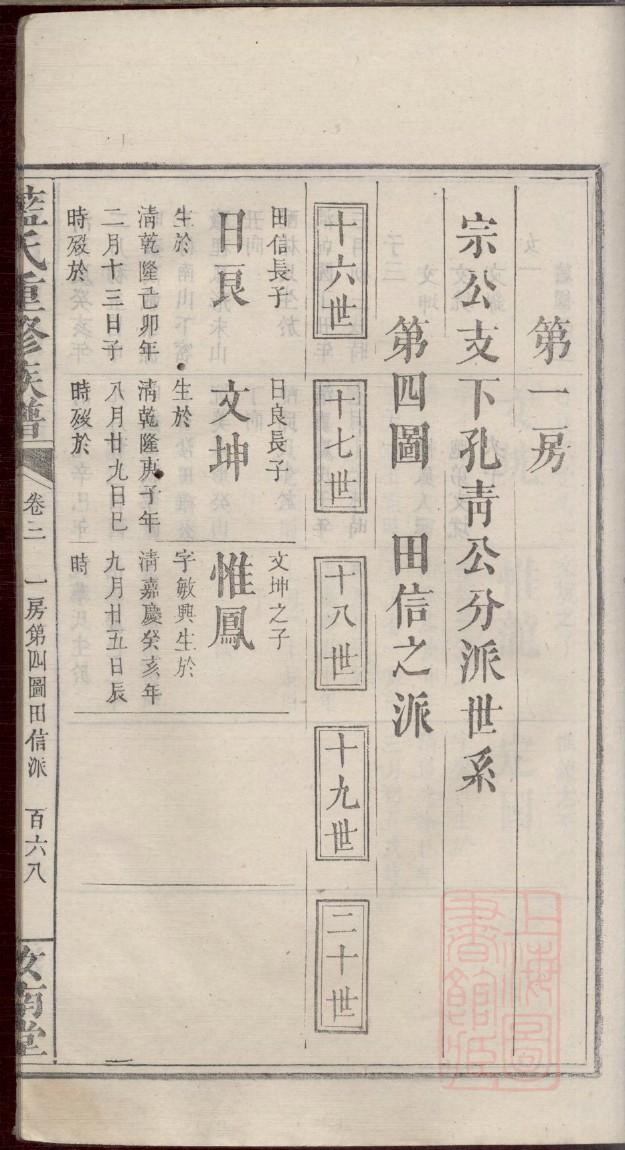 第一房
宗公支下孔靑公分派世系
第四圖　田信之派
十六世
十七世
十八世
十九世
二十世
田信長子
日良
生於
淸乾隆己卯年
二月十三日子
時殁於
日良長子
文坤
生於
淸乾隆庚子年
八月廿九日巳
時殁於
文坤之子
惟鳳
字敏興生於
淸嘉慶癸亥年
九月廿五日辰
時
藍氏重修族譜
卷三
一房第四圖田信派
百六八
汝南堂
上海圖
書館藏